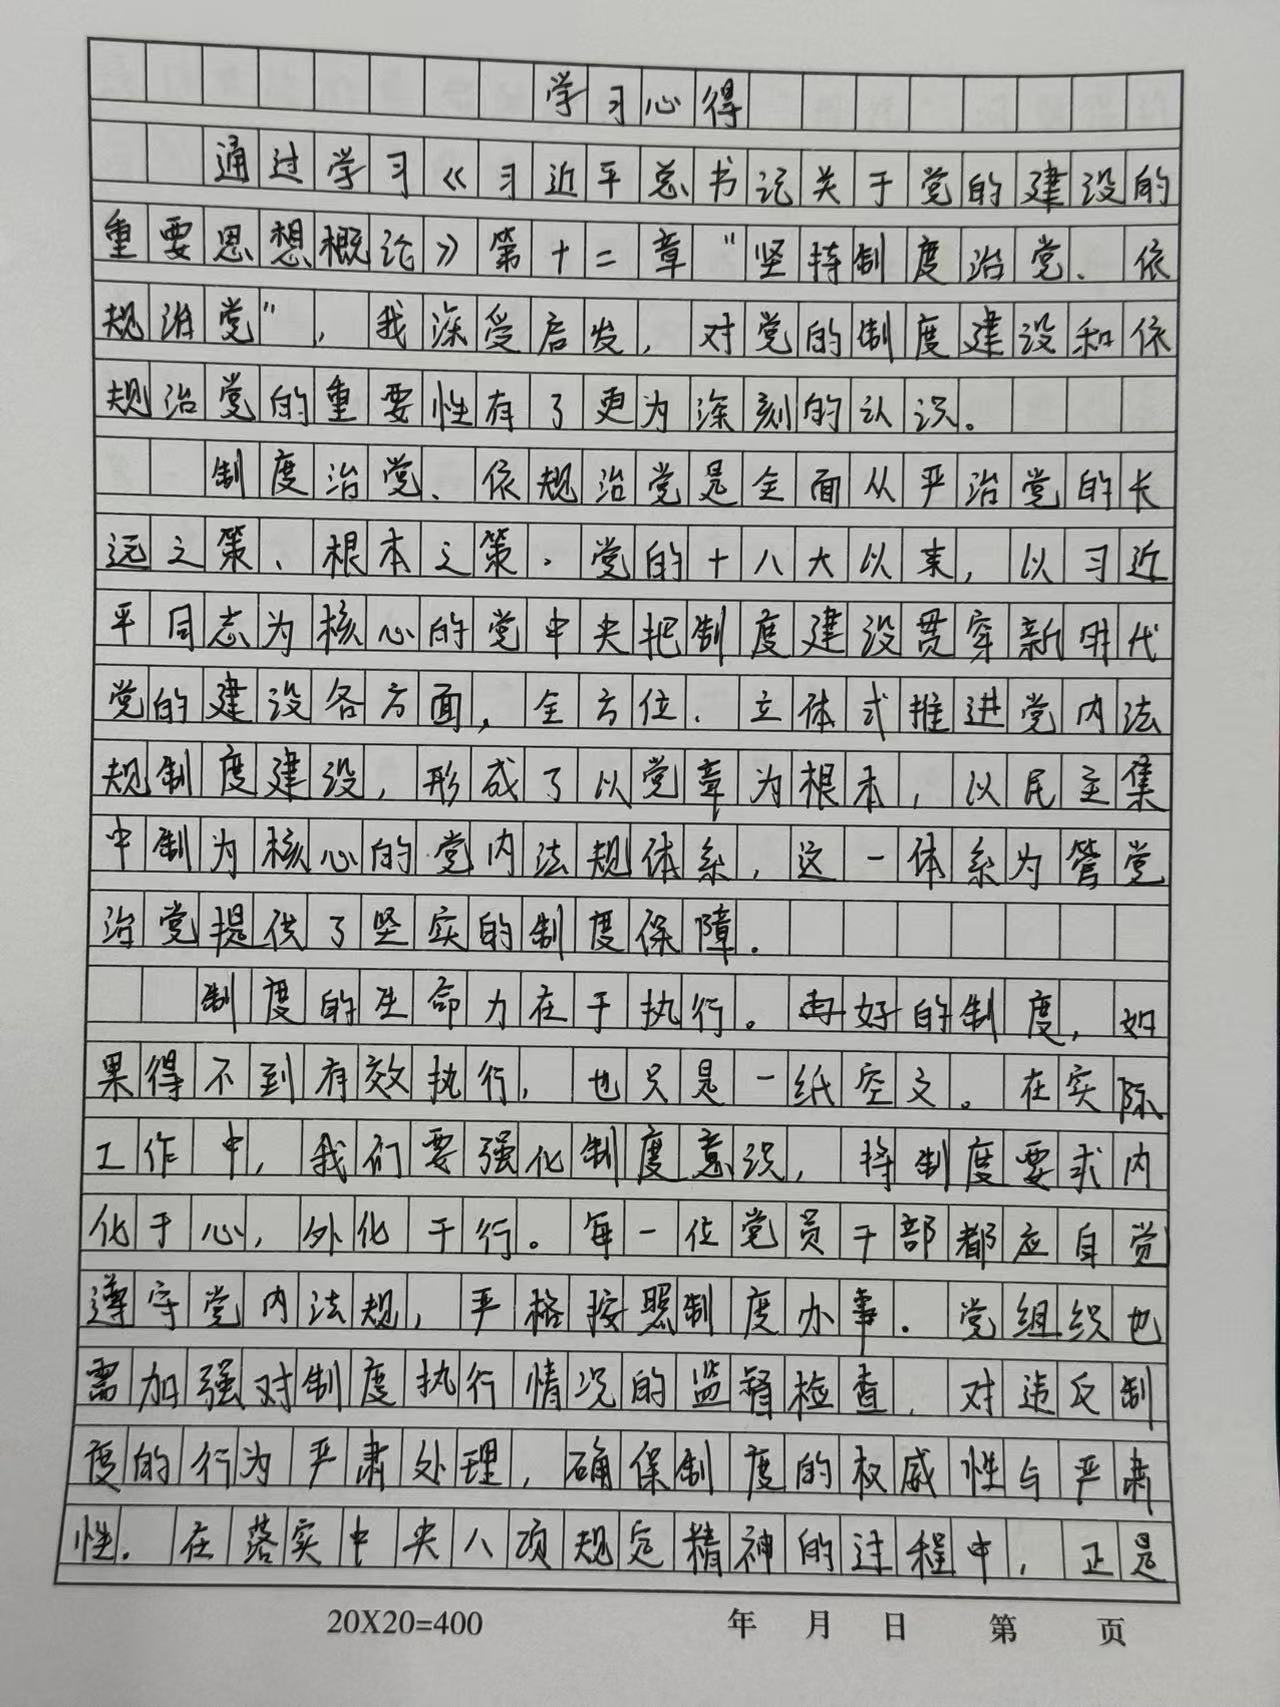 学习心得
通过学习《习近平总书记关于党的建设的
重要思想概论》第十二章"坚持制度治党、依
规治党"，我深受启发，对党的制度建设和依
规治党的重要性有了更为深刻的认识。
制度治党、依规治党是全面从严治党的长
远之策、根本之策。党的十八大以来，以习近
平同志为核心的党中央把制度建设贯穿新时代
党的建设各方面，全方位、立体式推进党内法
规制度建设，形成了以党章为根本，以民主集
中制为核心的党内法规体系，这一体系为管党
治党提供了坚实的制度保障。
制度的生命力在于执行。再好的制度，如
果得不到有效执行，也只是一纸空文。在实际
工作中，我们要强化制度意识，将制度要求内
化于心，外化于行。每一位党员干部都应自觉
遵守党内法规，严格按照制度办事。党组织也
需加强对制度执行情况的监督检查，对违反制
度的行为严肃处理，确保制度的权威性与严肃
性。在落实中央八项规定精神的过程中，正是
20X20=400 年 月 日 第 页